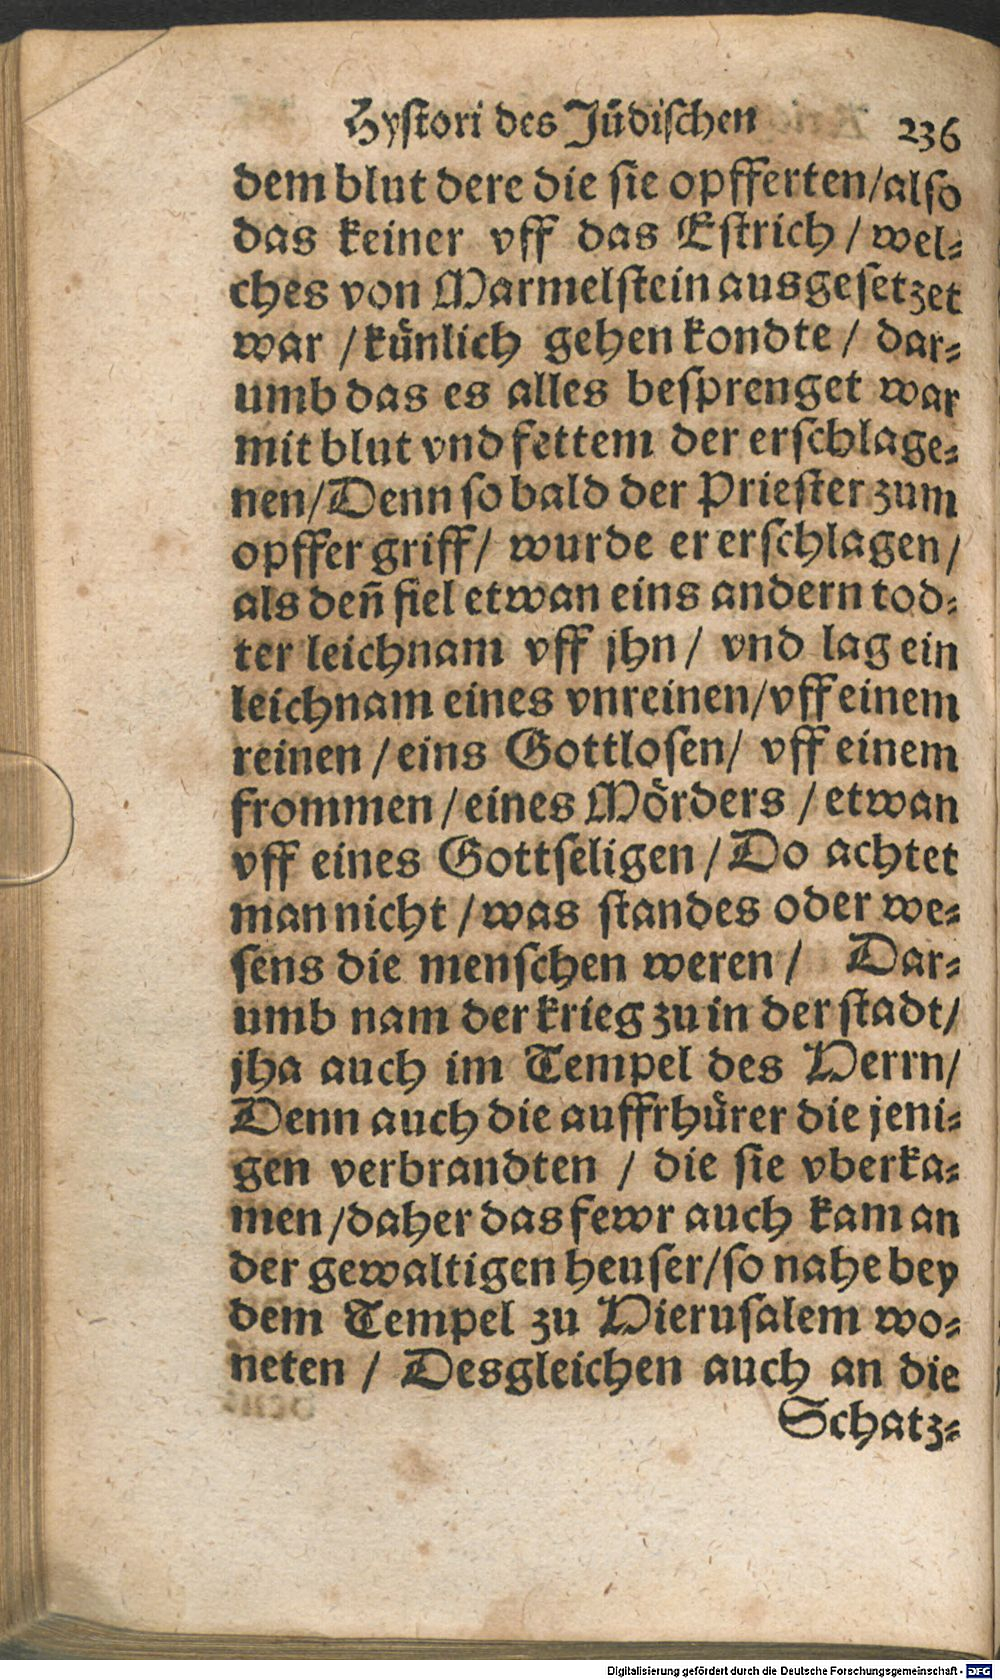 Hystori des Jüdischen 236
dem blut dere die sie opfferten/also
das keiner vff das Estrich / wel⸗
ches von Marmelstein ausgesetzet
war / künlich gehen kondte / dar⸗
umb das es alles besprenget war
mit blut vnd fettem der erschlage⸗
nen/Denn so bald der Priester zum
opffer griff/ wurde er erschlagen/
als deñ fiel etwan eins andern tod⸗
ter leichnam vff jhn/ vnd lag ein
leichnam eines vnreinen/vff einem
reinen / eins Gottlosen/ vff einem
frommen / eines Mörders / etwan
vff eines Gottseligen / Do achtet
man nicht / was standes oder we⸗
sens die menschen weren / Dar⸗
umb nam der krieg zu in der stadt/
jha auch im Tempel des Herrn/
Denn auch die auffrhürer die jeni⸗
gen verbrandten / die sie vberka⸗
men /daher das fewr auch kam an
der gewaltigen heuser/so nahe bey
dem Tempel zu Hierusalem wo⸗
neten / Desgleichen auch an die
Schatz⸗
Digitalisierung gefördert durch die Deutsche Forschungsgemeinschaft - DFG